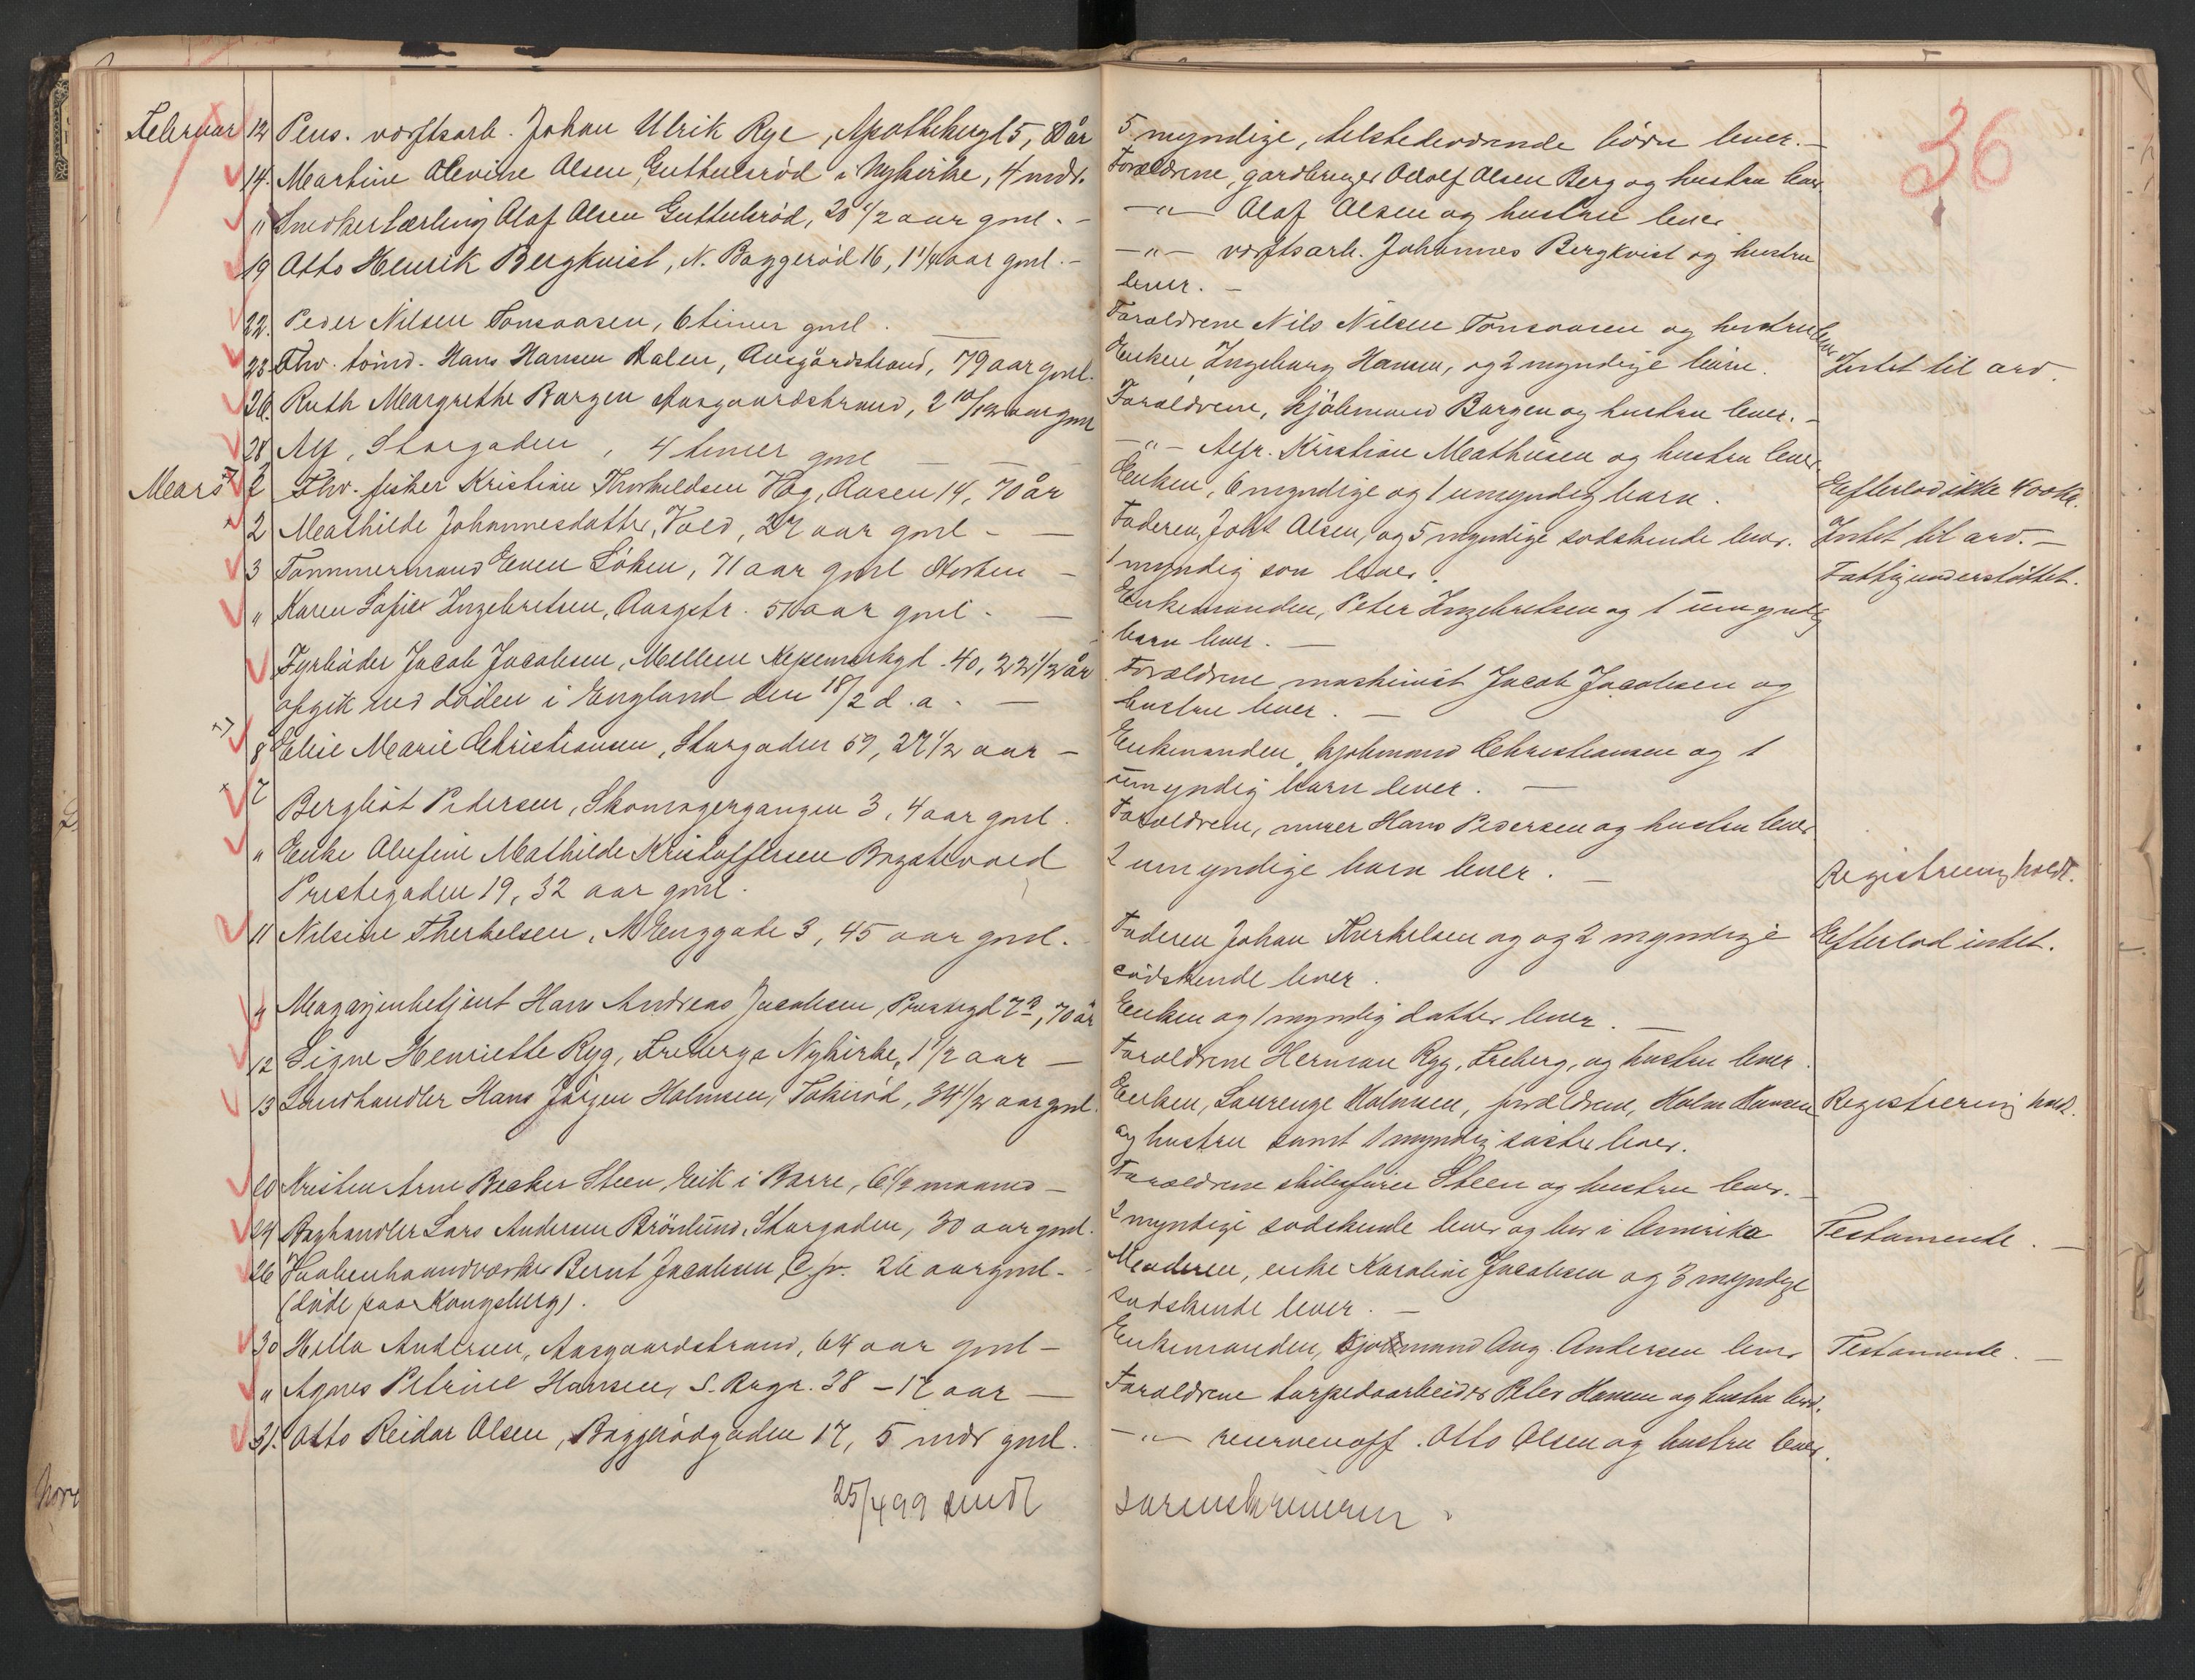 36
Februar 12 Pens. værftsarb. Johan Ulrik Rye, Apothekergt 5, 80 år
14. Martine Olevine Olsen, Guttulsrød i Nykirke, 4 mdr.
" Snedkerlærling Olaf Olsen Guttulsrød, 20 1/2 aar gml. -
19 Otto Henrik Bergkvist, N. Baggerød 16, 1 1/4 aar gml. -
22. Peder Nilsen Tonsaasen, 6 timer gml.
23 Fhv. tømd. Hans Hansen Dalen, Aasgårdstrand, 79 aar gml.
26. Ruth Margrethe Borgen Aasgaardstrand, 2 10/12 aar gml
28 Alf, Storgaden, 4 timer gml
Mars 2 Fhv. fisker Kristian Thorkildsen Hog, Aasen 14, 70 år
2 Mathilde Johannesdatter, Vold, 27 aar gml -
3 Tømmermand Even Löken, 71 aar gml Horten -
" Karen Sofie Ingebretsen, Aasgstr. 50 aar gml. -
Fyrbøder Jacob Jacobsen, Mellem Repemarkgd. 40, 22 1/2 år
afgik ved døden i England den 18/2 d. a. -
8 Elise Marie Christiansen, Storgaden 59, 27 1/2 aar -
7 Bergliot Pedersen, Skomagergangen 3, 4 aar gml.
" Enke Olufine Mathilde Kristoffersen
Prestegaden 19, 32 aar gml.
11 Nilsine Therkelsen, N Enggade 3, 45 aar gml.
" Magazinbetjent Hans Andreas Jacobsen, Prestegd 7a, 70 år
12 Signe Henriette Ryg, Freberg Nykirke, 1 1/2 aar -
13 Landhandler Hans Jørgen Holmsen, Takerød, 34 1/2 aar gml.
20 Kristen Arne Becker Steen, Eik i Borre, 6 1/2 maaned -
24 Baghandler Lars Andersen Brönlund, Storgaden, 30 aar gml.
26 Vaabenhaandværker Bernt Jacobsen, 26 aar gml -
(døde paa Kongsberg).
30 Hella Andersen, Aasgaardstrand, 64 aar gml -
" Agnes Petrine Hansen, S. Bagr. 38 - 17 aar -
31. Otto Reidar Olsen, Baggerødgaden 17, 5 mdr gml.
25/4 99 sendt
5 myndige, tilstedeværende børn lever. -
Forældrene, gardbruger Adolf Olsen Berg og hustru lever
- " - Olaf Olsen og hustru lever
- " - værftsarb. Johannes Bergkvist og hustru
lever. -
Forældrene Nils Nilsen Tonsaasen og hustru lever
Enken, Ingeborg Hansen, og 2 myndige børn. Intet til arv.
Forældrene, kjøbmand Borgen og hustru lever. -
- " - Kristian Mathisen og hustru lever
Enken, 6 myndige og 1 umyndig barn. Efterlod ikke 400 Kr.
Faderen, Johs Olsen, og 5 myndige sødskende lever. Intet til arv. -
1 myndig søn lever. Fattigunderstøttet.
Enkemanden, Peter Ingebretsen og 1 umyndig
barn lever. -
Forældrene maskinist Jacob Jacobsen og
hustru lever. -
Enkemanden, kjøbmand Christiansen og 1
umyndig barn lever. -
Forældrene, murer Hans Pedersen og hustru lever
2 umyndige børn lever. - Registrering holdt.
Faderen Johan Therkelsen og og 2 myndige Efterlod intet.
sødskende lever.
Enken og 1 myndig datter lever. -
Forældrene Herman Ryg, Freberg, og hustru lever.
Enken, Laurenze Holmsen, forældrene, Holm Hansen Registrering holdt.
og hustru samt 1 myndig søster lever.
Forældrene skibsfører Steen og hustru lever. -
2 myndige sødskende lever og bor i Amerika Testamente. -
Moderen, enke Karoline Jacobsen og 3 myndige
sødskende lever. -
Enkemanden, kjøbmand Aug. Andersen lever Testamente. -
Forældrene torpedoarbeider Peter Hansen og hustru lever.
- " - Otto Olsen og hustru lever.
sorenskriveren.